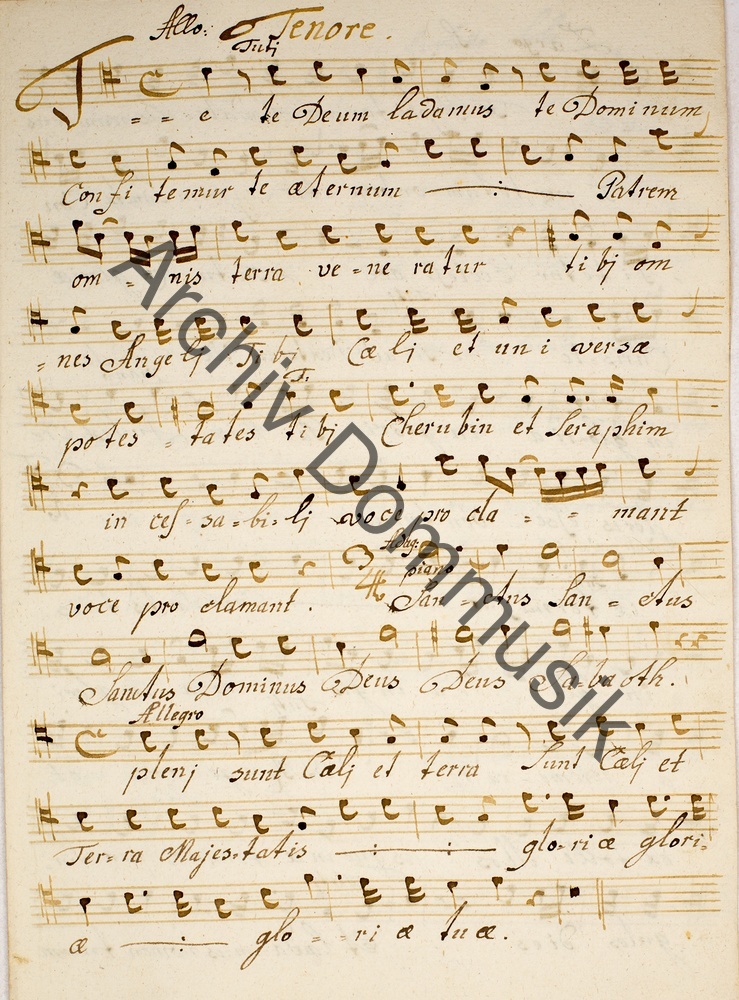 Allo: Tenore.
Tutj
T = = e te Deum ladamus te Dominum
Confi temur te æternum : Patrem
om = nis terra ve = ne ratur tibj om
= nes Angelj Tibj Cælj et universæ
T:
potes = tates tibj Cherubin et Seraphim
in ces = sa = bi = lj voce pro cla = = mant
Adag:
piano
voce pro clamant. San = ctus San = ctus
Sanctus Dominus Deus Deus Sa = ba oth.
Allegro
plenj sunt Cælj et terra Sunt Cælj et
Ter = ra Majes = tatis : : glo = riæ glori =
æ : glo = = ri æ tuæ.
Archiv Dommusik